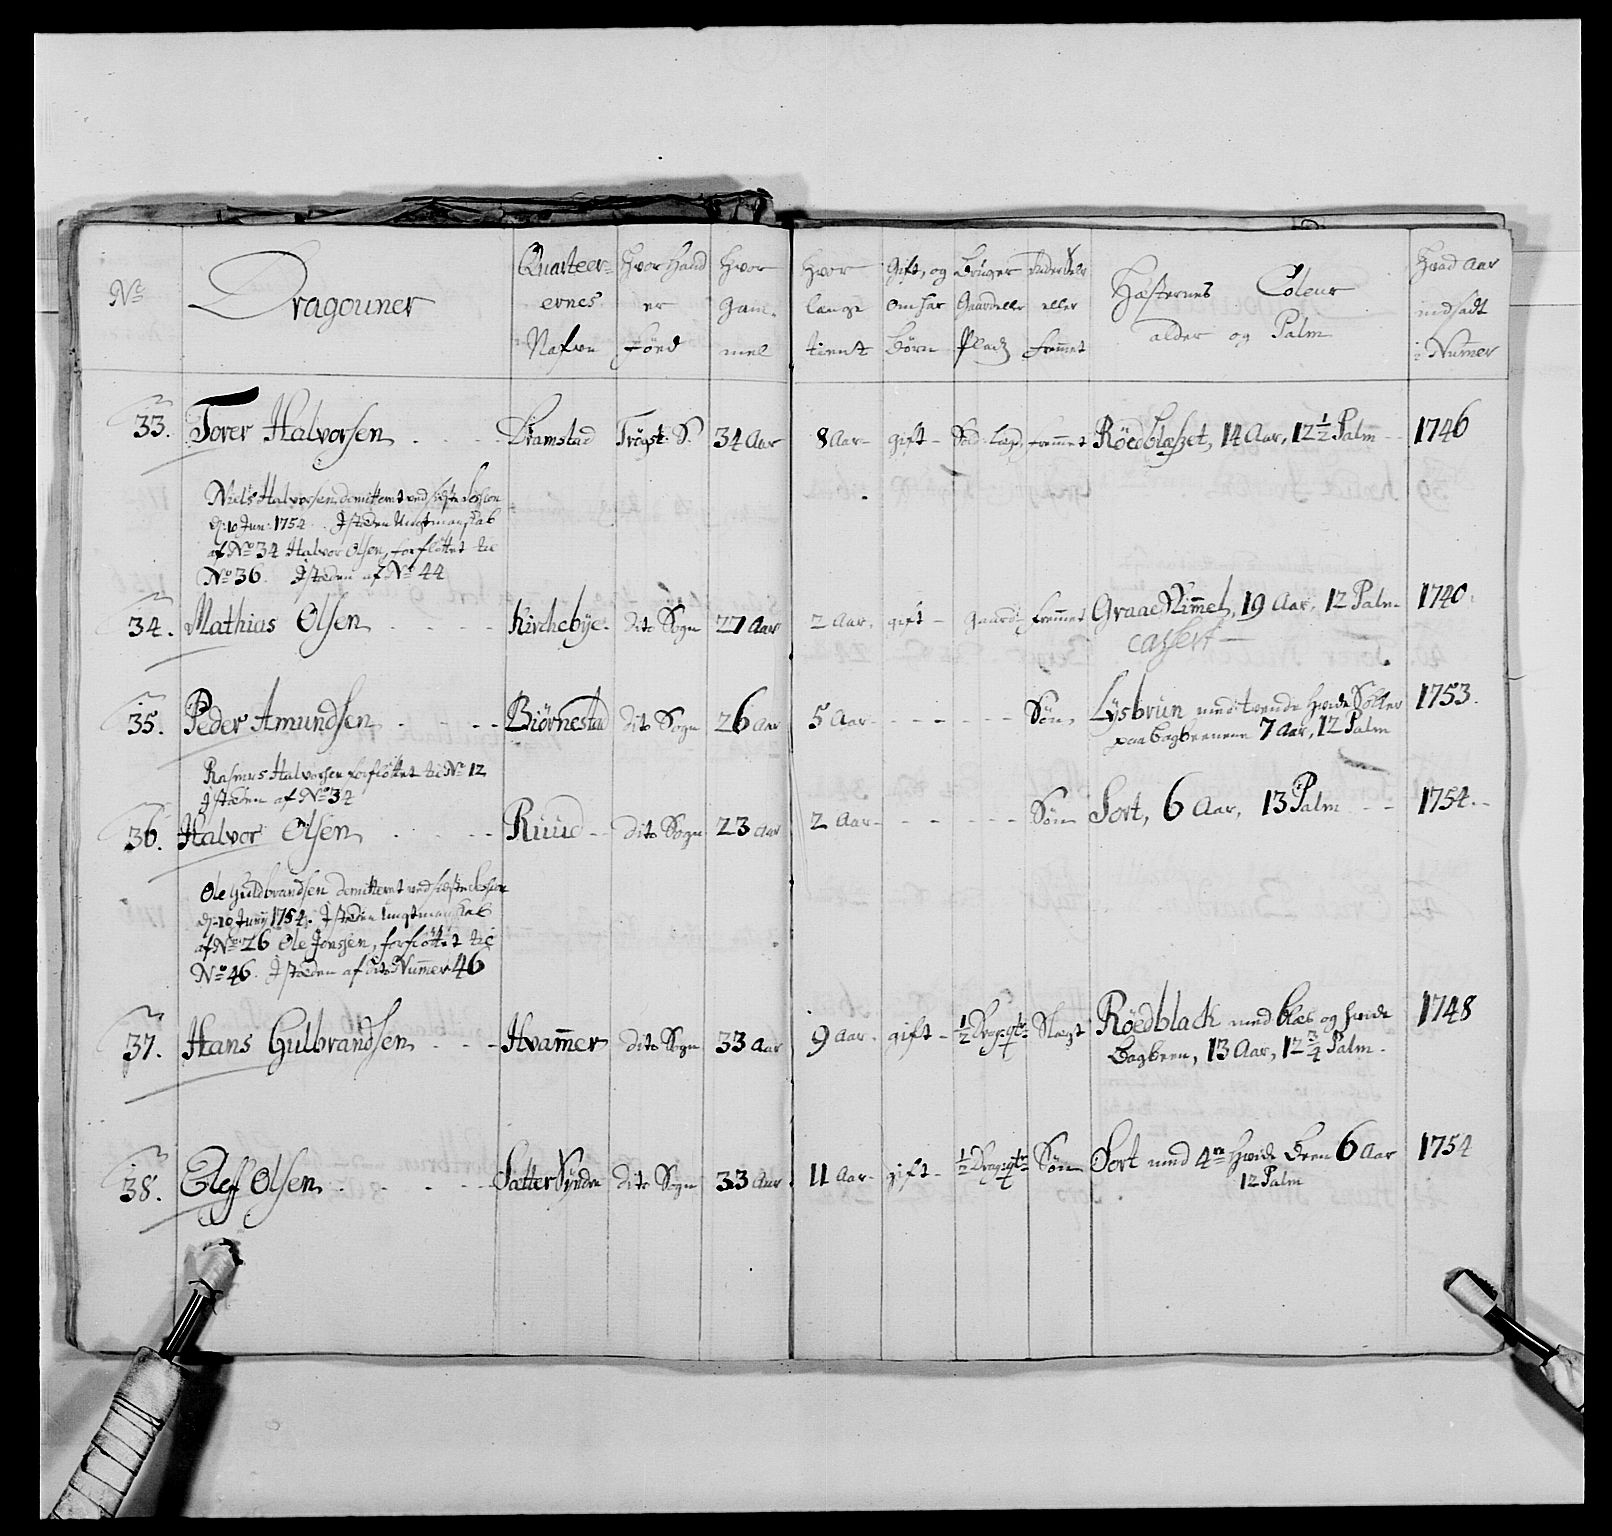 No
Dragouner
Quarteer=
ernes
Nafve
Hvor Hand
er
Föed
Hvor
Gam-
mel
Hvor
længe
tient
Gift, og
om har
Börn
Bruger
Gaard eller
Pladz
eller
fremmet
Hæsternes Coleur
alder og Palm
Hvad Aar
indsadt
i Nummer
33. Torer Halvorsen Dramstad Trögst: S. 34 Aar 8 Aar gift fremmet Röedblesset, 14 Aar, 12 1/2 Palm 1746
Niels Halvorsen demitteret ved sidste Session
d: 10 Jun: 1754. I stæden Ungtmandskab
af No 34 Halvor Olsen, forflöttet til
No 36. I stæden af No 44
34. Mathias Olsen Kirchebÿe dito Sogn 27 Aar 2 Aar gift Gaard fremmet Graae Skimmel, 19 Aar, 12 Palm 1740.
Cassert
35. Peder Amundsen Biörnestad dito Sogn 26 Aar 5 Aar Sön Lÿsbrun med tvende Hvide Sokker 1753.
paa bagbeenene 7 Aar, 12 Palm
Rasmus Halvorsen forflöttet til No 12
I stæden af No 34
36. Halvor Olsen Ruud dito Sogn 23 Aar 2 Aar Sön Sort, 6 Aar, 13 Palm 1754.
Ole Guldbrandsen demitteret ved sidste Session
d: 10 Junÿ 1754. I stæden Ungtmandskab
af No 26 Ole Jonssen, forflöttet til
No 46. I stæden af dito Nummer 46
37. Hans Gulbrandsen Hvammer dito Sogn 33 Aar 9 Aar gift 1/2 Drag: qtr Slegt Röedblack med bles og hvide 1748
Bagbeen, 13 Aar, 12 3/4 Palm.
38. Elef Olsen Sætter Syndre dito Sogn 33 Aar 11 Aar gift 1/2 Drag: qtr Sön Sort med 4re Hvide Been 6 Aar 1754
12 Palm